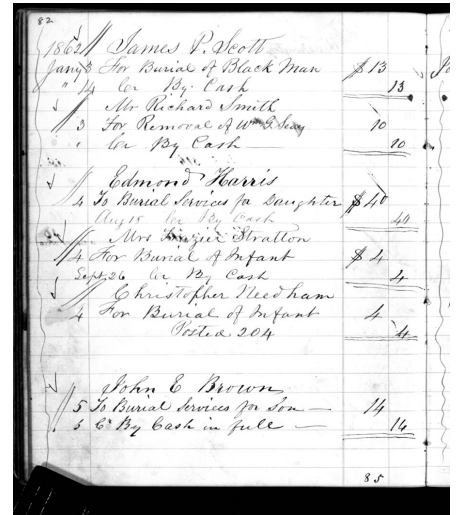 82
1862 James P. Scott
Jany 3 For Burial of Black Man $13
" 14 Cr By Cash 13
Mr Richard Smith
3 For Removal of Wm G. 10
" Cr By Cash 10
Edmond Harris
4 To Burial Services for Daughter $40
Aug 15 Cr By Cash 40
Mrs Stratton
4 For Burial of Infant $4
Sept 26 Cr By Cash 4
Christopher Needham
4 For Burial of Infant 4
Posted 204 4
John E Brown
5 To Burial Services for Son 14
5 Cr By Cash in full 14
85